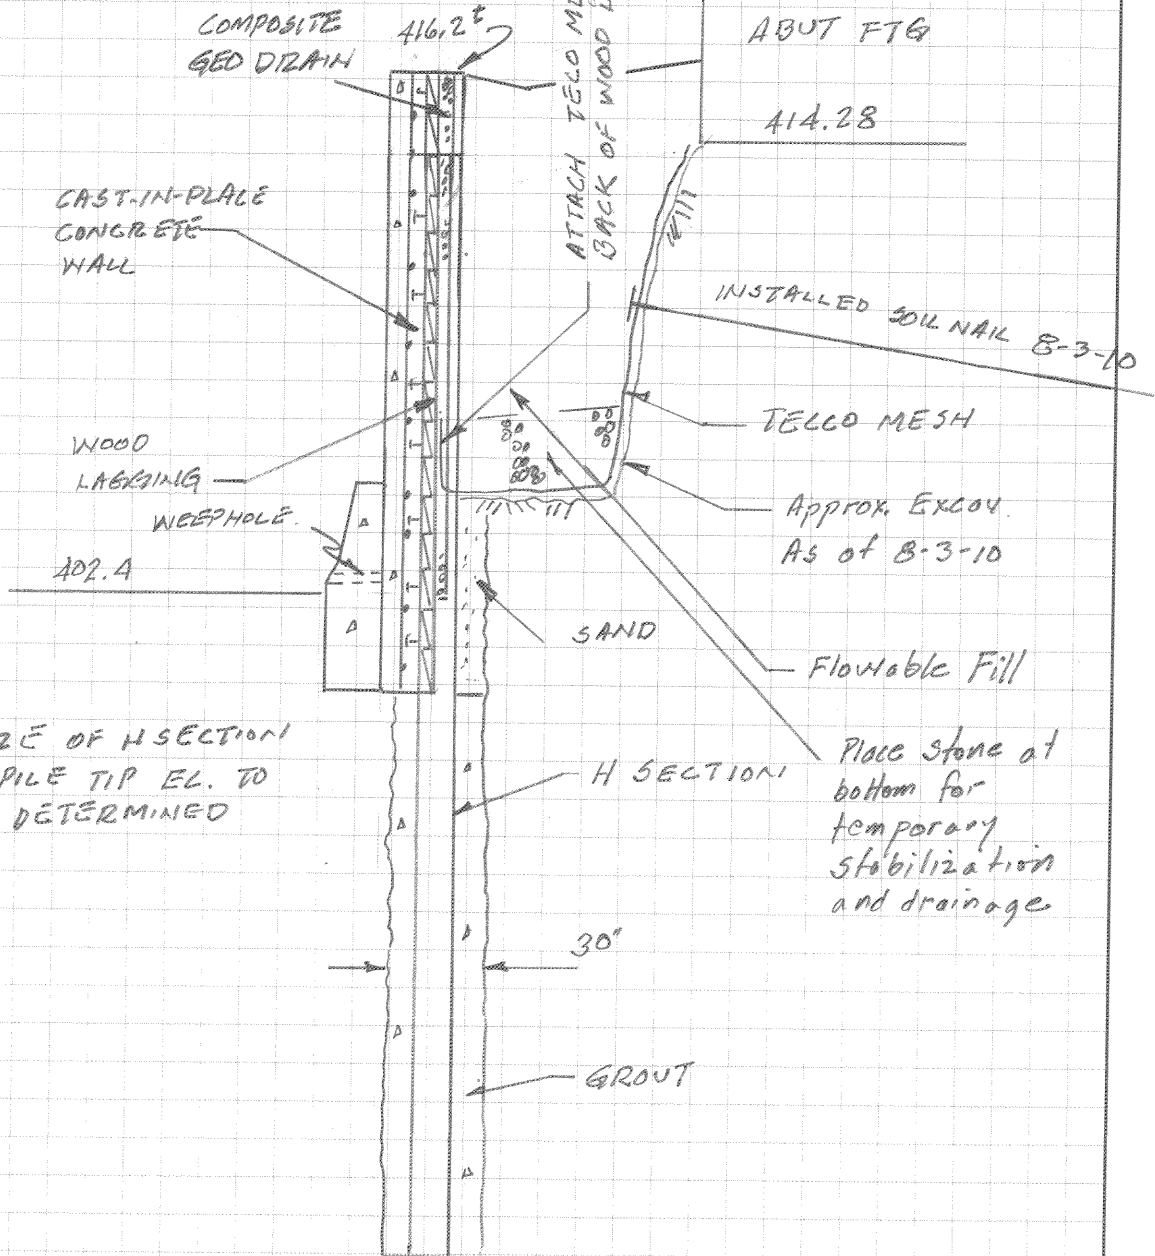 COMPOSITE
GEO DRAIN
416.2±
ABUT FTG
414.28
ATTACH TELCO
BACK OF WOOD
CAST-IN-PLACE
CONCRETE
WALL
INSTALLED SOIL NAIL 8-3-10
TELCO MESH
WOOD
LAGGING
WEEPHOLE
402.4
Approx. Excav.
As of 8-3-10
SAND
Flowable Fill
OF H SECTION
PILE TIP EL. TO
DETERMINED
H SECTION
Place stone at
bottom for
temporary
stabilization
and drainage
30"
GROUT